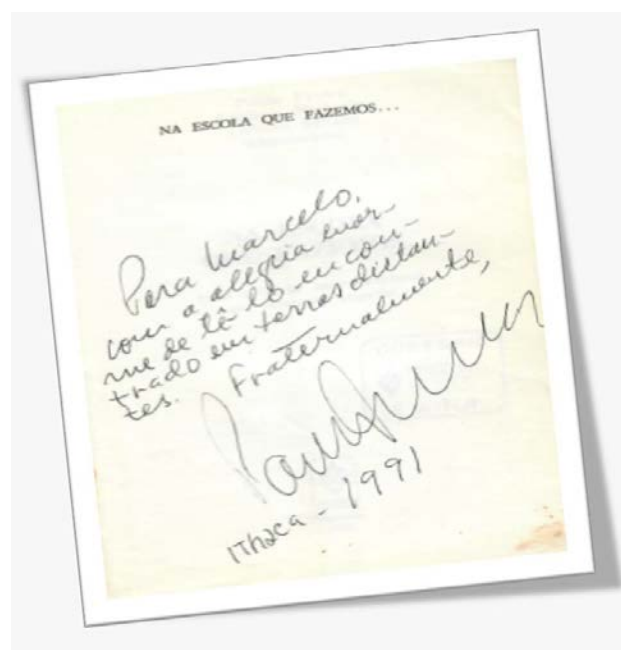 NA ESCOLA QUE FAZEMOS...
Para Marcelo,
com a alegria enor-
me de tê-lo encon-
trado em terras distan-
tes. Fraternalmente,
Ithaca - 1991